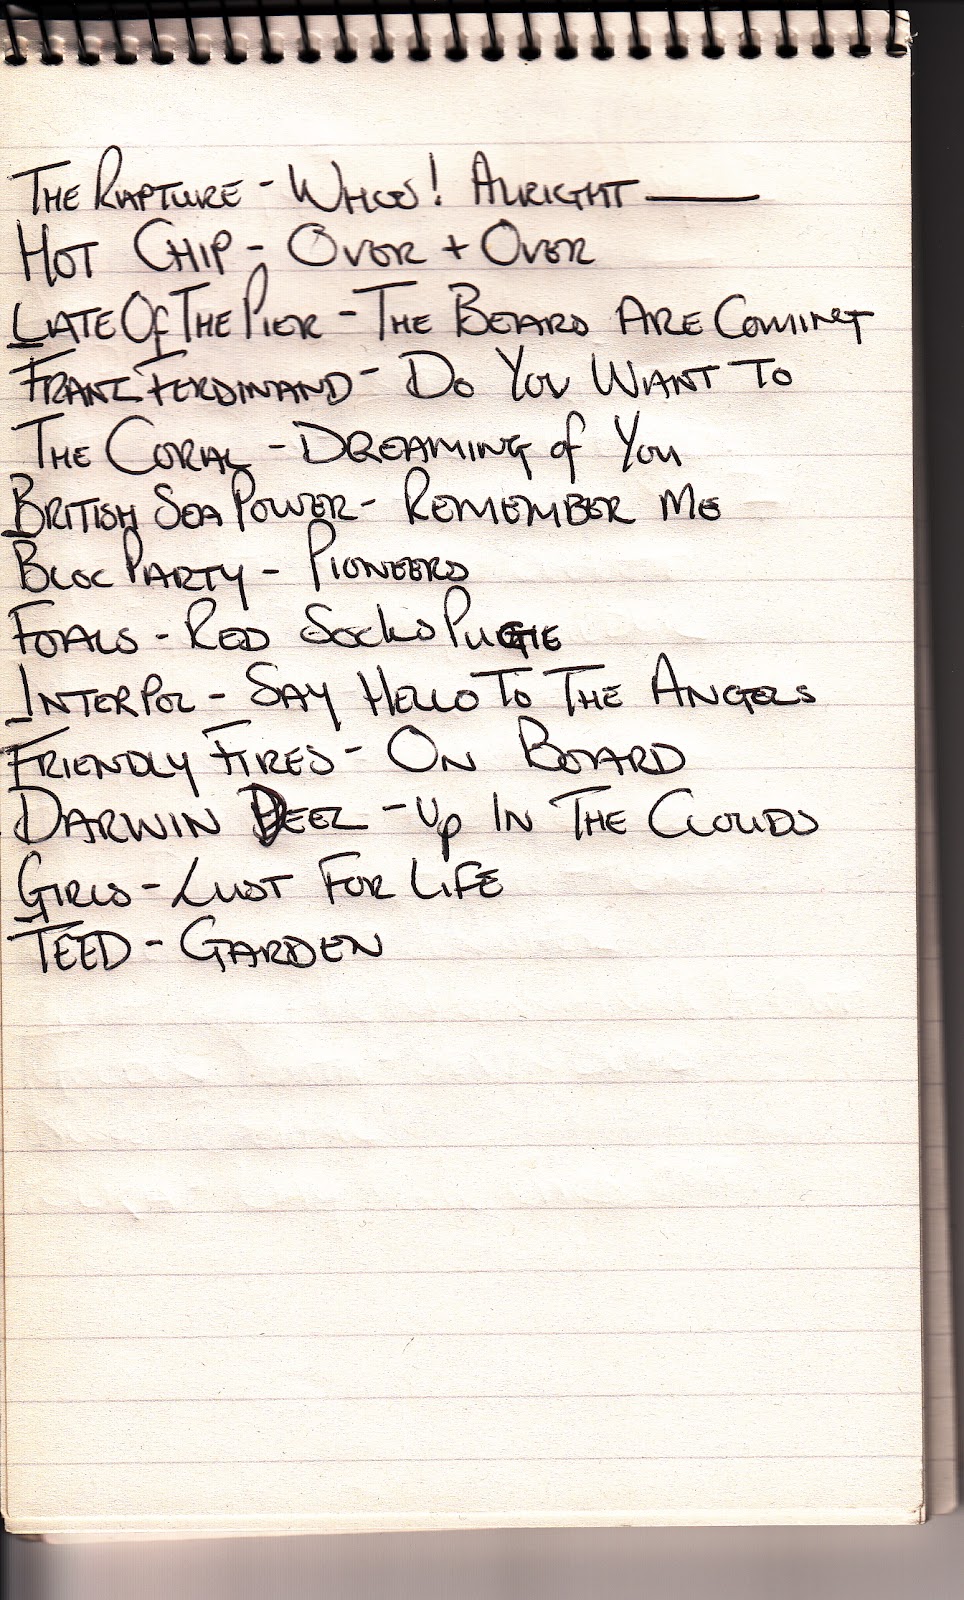 The Rapture - Whoo! Alright ——
Hot Chip - Over + Over
Late Of The Pier - The Beard Are Coming
Franz Ferdinand - Do You Want To
The Coral - Dreaming of You
British Sea Power - Remember Me
Bloc Party - Pioneers
Foals - Red Socks Pugie
Interpol - Say Hello To The Angels
Friendly Fires - On Board
Darwin Deez - Up In The Clouds
Girls - Lust For Life
TEED - Garden